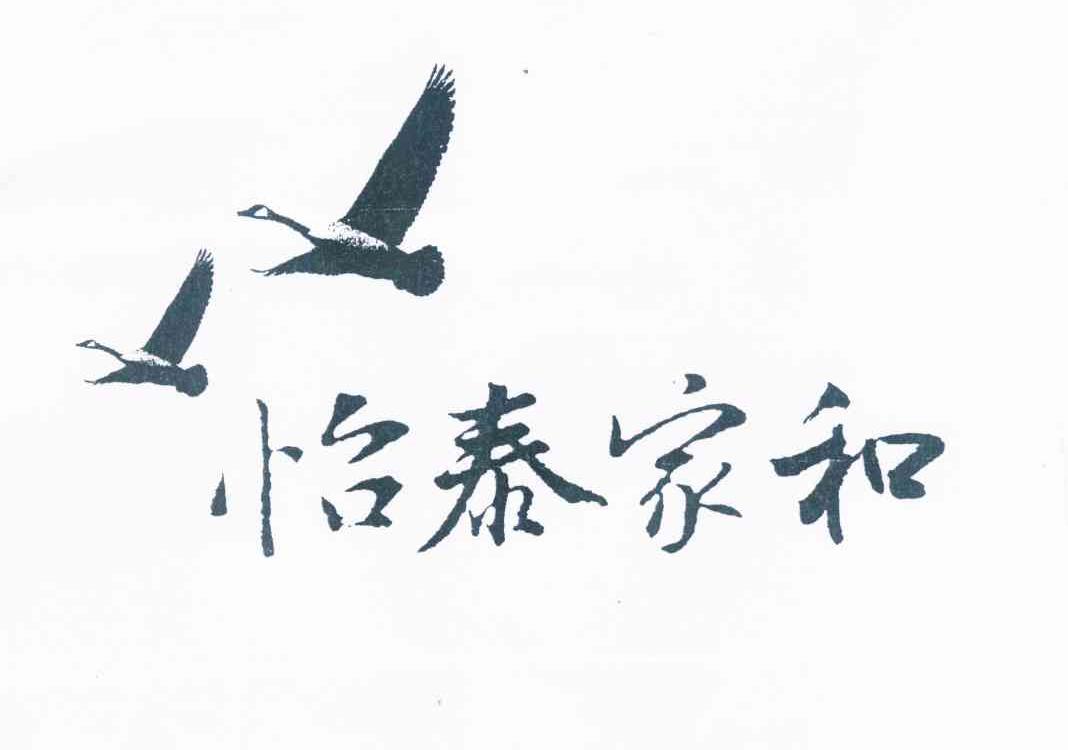 怡泰家和